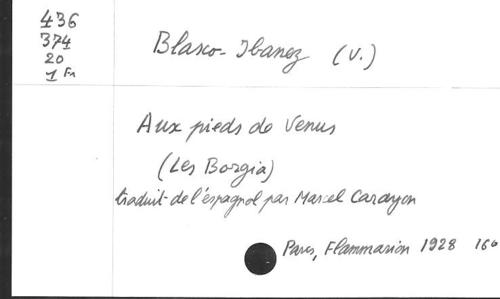 436
374
20
1 Fn
Blasco-Ibanez (V.)
Aux pieds de Venus
(Les Borgia)
traduit de l'espagnol par Marcel Carayon
Paris, Flammarion 1928 166